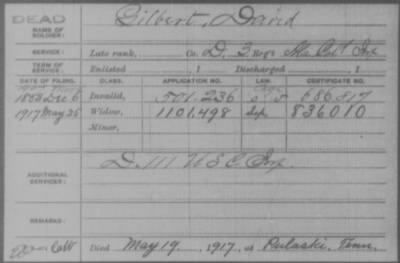 DEAD
NAME OF SOLDIER: Gilbert, David
SERVICE: Late rank, Co. D, 3 Reg't Ala Col'd Inf
TERM OF SERVICE: Enlisted , 1 Discharged , 1
DATE OF FILING. CLASS. APPLICATION NO. LAW. CERTIFICATE NO.
1888 Dec 6 Invalid, 501.236 686817
1917 May 25 Widow, 1101.498 836010
Minor,
ADDITIONAL SERVICES: D. 111 U S C Inf.
REMARKS:
Died May 19, 1917, at Pulaski, Tenn.